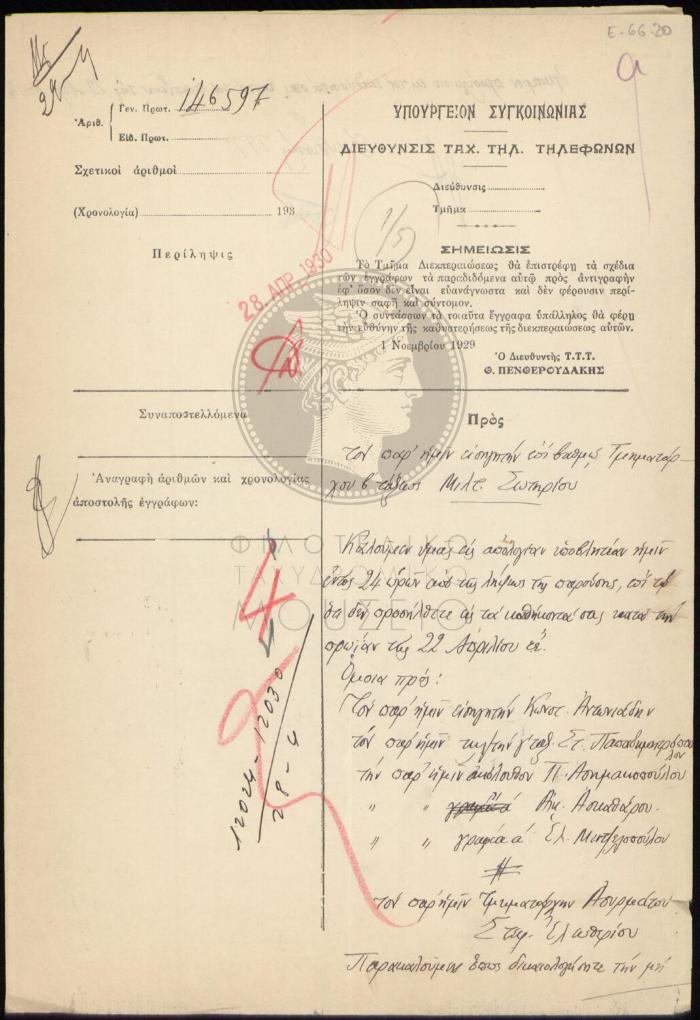 Ε-66.20
Ἀριθ.
Γεν. Πρωτ. 146597
Εἰδ. Πρωτ.
Σχετικοὶ ἀριθμοὶ
(Χρονολογία) 193
Περίληψις
28 ΑΠΡ. 1930
Συναποστελλόμενα
Ἀναγραφὴ ἀριθμῶν καὶ χρονολογίας
ἀποστολῆς ἐγγράφων:
12024-12030
28-4
ΥΠΟΥΡΓΕΙΟΝ ΣΥΓΚΟΙΝΩΝΙΑΣ
ΔΙΕΥΘΥΝΣΙΣ ΤΑΧ. ΤΗΛ. ΤΗΛΕΦΩΝΩΝ
Διεύθυνσις
Τμῆμα
1/5
ΣΗΜΕΙΩΣΙΣ
Τὸ Τμῆμα Διεκπεραιώσεως θὰ ἐπιστρέφῃ τὰ σχέδια
τῶν ἐγγράφων τὰ παραδιδόμενα αὐτῷ πρὸς ἀντιγραφὴν
ἐφ' ὅσον δὲν εἶναι εὐανάγνωστα καὶ δὲν φέρουσιν περί-
ληψιν σαφῆ καὶ σύντομον.
Ὁ συντάσσων τὰ τοιαῦτα ἔγγραφα ὑπάλληλος θὰ φέρῃ
τὴν εὐθύνην τῆς καθυστερήσεως τῆς διεκπεραιώσεως αὐτῶν.
1 Νοεμβρίου 1929
Ὁ Διευθυντὴς Τ.Τ.Τ.
Θ. ΠΕΝΘΕΡΟΥΔΑΚΗΣ
Πρὸς
τὸν παρ' ἡμῖν εἰσηγητὴν ἐπὶ βαθμῷ Τμηματάρ-
χου β' τάξεως Μιλτ. Σωτηρίου
ΦΙΛΟΤΕΛΙΚΟ
ΤΑΧΥΔΡΟΜΙΚΟ
ΜΟΥΣΕΙΟ
Καλοῦμεν ὑμᾶς εἰς ἀπολογίαν ὑποβλητέαν ἡμῖν
ἐντὸς 24 ὡρῶν ἀπὸ τῆς λήψεως τῆς παρούσης, ἐπὶ τῷ
ὅτι δὲν προσήλθετε εἰς τὰ καθήκοντά σας κατὰ τὴν
πρωΐαν τῆς 22 Ἀπριλίου ἐ.ἔ.
Ὅμοια πρὸς:
Τὸν παρ' ἡμῖν εἰσηγητὴν Κωνστ. Ἀντωνιάδην
τὸν παρ' ἡμῖν τηλ/τὴν γ' ταξ. Στ. Παπαδημητρόπου-
λον
τὴν παρ' ἡμῖν ἀκόλουθον Π. Ἀσημακοπούλου
" " Αἰκ. Ἀσκαθάρου.
" " γραφέα α' Ἑλ. Μιντζελοπούλου
τὸν παρ' ἡμῖν Τμηματάρχην Ἀσυρμάτου
Σταρ. Ἐλευθερίου
Παρακαλοῦμεν ὅπως δικαιολογήσητε τὴν μὴ